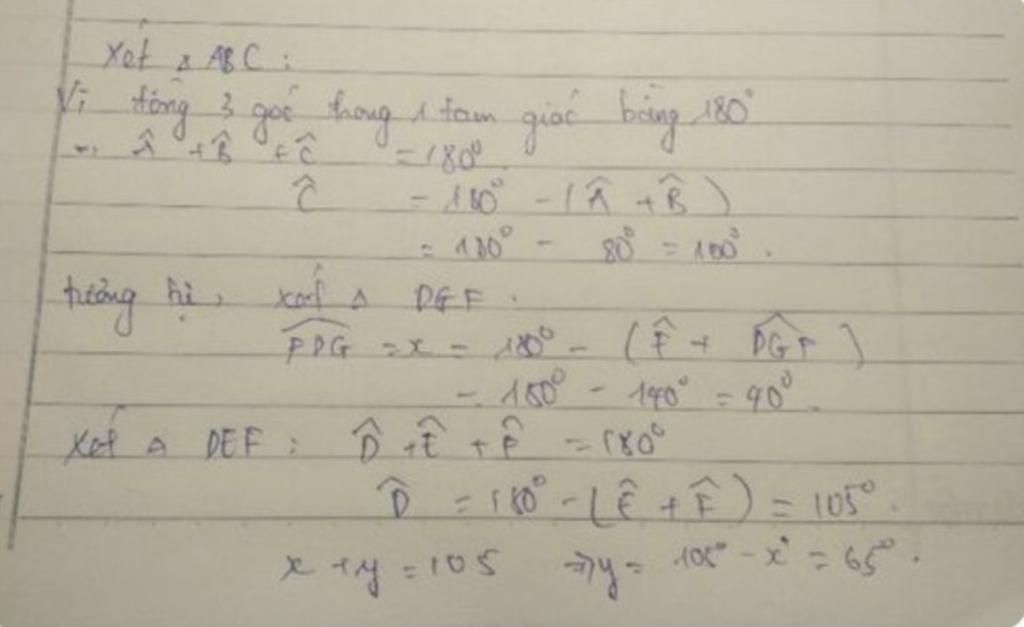 Xét Δ ABC :
Vì tổng 3 góc trong 1 tam giác bằng 180°
Â + B̂ + Ĉ = 180°
Ĉ = 180° - ( Â + B̂ )
= 180° - 80° = 100° .
tương tự , xét Δ DGF .
FDG = x = 180° - ( F̂ + DGF )
= 180° - 140° = 40° .
Xét Δ DEF : D̂ + Ê + F̂ = 180°
D̂ = 180° - ( Ê + F̂ ) = 105° .
x + y = 105 ⇒ y = 105° - x° = 65° .